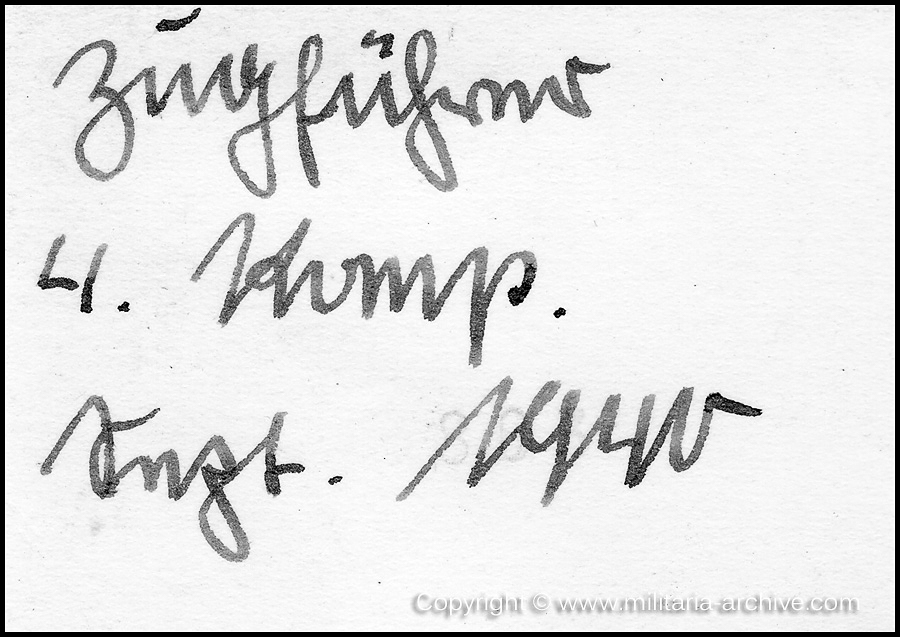 Zugführer
4. Komp.
Sept. 1940
Copyright © www.militaria-archive.com